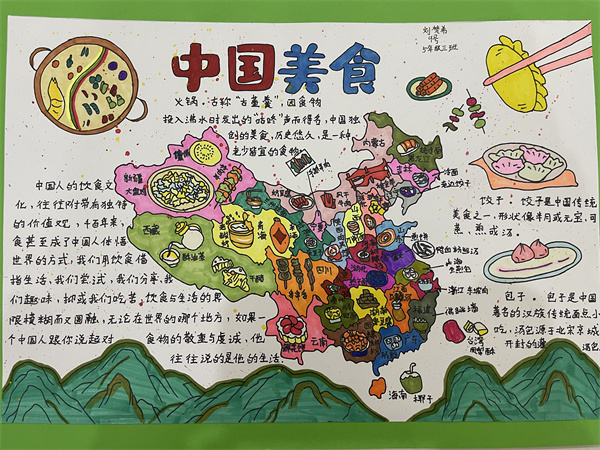 刘赞弟
4号
5年级三班
中国美食
火锅，古称"古董羹"，因食物
投入沸水时发出的"咕咚"声而得名，中国独
创的美食，历史悠久，是一种
老少皆宜的食物。
中国人的饮食文
化，往往附带有独特
的价值观，千百年来，
食甚至成了中国人体悟
世界的方式，我们用饮食借
指生活，我们尝试，我们分享，我
们趣味，抑或我们吃苦，饮食与生活的界
限模糊而又圆融，无论在世界的哪个地方，如果一
个中国人跟你说起对 食物的敬重与虔诚，他
往往说的是他的生活。
饺子：饺子是中国传统
美食之一，形状像半月或元宝，可
蒸、煎或汤。
包子：包子是中国
著名的汉族传统面点小
吃，汤包源于北宋京城
开封的灌 汤包
新疆
大盘鸡
西藏
酥油茶
青海
四川
云南
内蒙古
黑龙江
吉林
冷面
宁夏
山东
煎饼
上海
生煎包
浙江 东坡肉
福建
广东
台湾
凤梨酥
海南
椰子